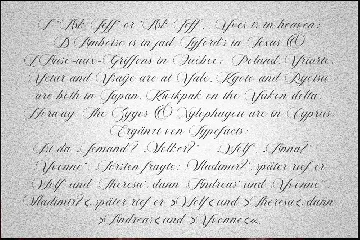 "Ask Jeff" or "Ask Jeff". Yves is in heaven:
D'Ambrose is in jail. Lyford's in Texas &
L'Anse-aux-Griffons in Quebec. Poland. Uriarte.
Yetur and Vrage are at Yale. Kyoto and Ryotsu
are both in Japan. Kwikpak on the Yukon delta.
Norway. The Zyxer & Xylophagou are in Cyprus
Ergänzt von Typefacts:
Ist da jemand? Volker? Wolf. Anna?
"Yvonne" Torsten fragte: Vladimir? später rief er
Wolf und Theresa dann Andreas und Yvonne
Vladimir? später rief er »Wolf« und »Theresa« dann
»Andreas« und »Yvonne« an.